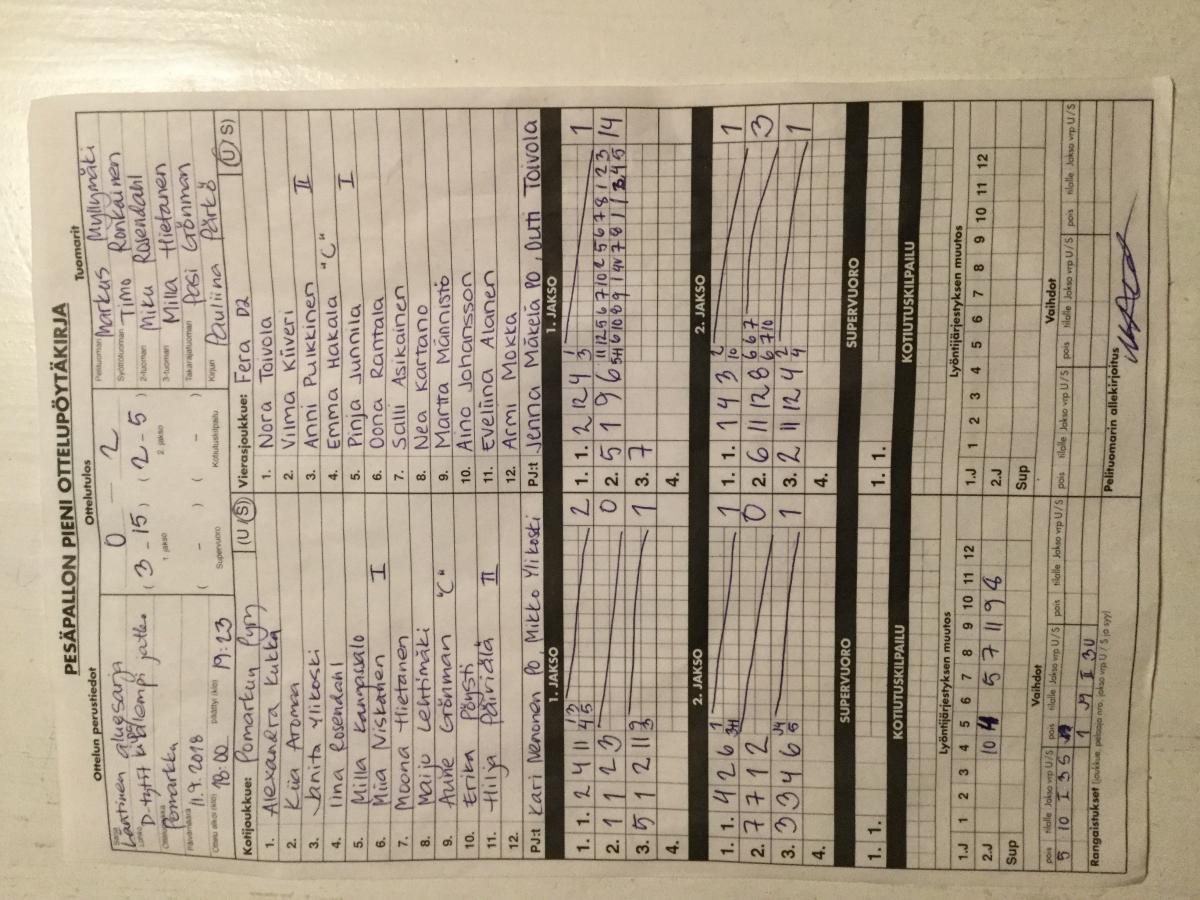 PESÄPALLON PIENI OTTELUPÖYTÄKIRJA
Ottelun perustiedot
Läntinen aluesarja
D-tytöt kilpa alempi jatko
Pomarkku
Päivämäärä 11.9.2018
Ottelu alkoi (klo) 18:00 päättyi (klo) 19:23
Ottelutulos
0 2
(3 - 15) (2 - 5)
1. jakso 2. jakso
( - ) ( - )
Supervuoro Kotiutuskilpailu
Tuomarit
Pelituomari Markus Myllymäki
Syöttötuomari Timo Ronkainen
2-tuomari Miku Rosendahl
3-tuomari Milla Hietanen
Takarajatuomari Pasi Grönman
Kirjuri Pauliina Pärkö
Kotijoukkue: Pomarkun Pyry (U S)
1. Alexandra Kukka
2. Kiia Aroma
3. Janita Ylikoski
4. Iina Rosendahl
5. Milla Kampusalo
6. Miia Niskanen I
7. Moona Hietanen
8. Maiju Lehtimäki
9. Aune Grönman "C"
10. Erika Pöysti
11. Hilja Päiviölä II
12.
PJ:t Kari Nenonen PO, Mikko Ylikoski
Vierasjoukkue: Fera D2 (U S)
1. Nora Toivola
2. Vilma Kiiveri
3. Anni Pulkkinen II
4. Emma Hakala "C"
5. Pinja Junnila I
6. Oona Rantala
7. Salli Asikainen
8. Nea Kartano
9. Martta Männistö
10. Aino Johansson
11. Eveliina Alanen
12. Armi Mokka
PJ:t Jenna Mäkelä PO, Outi Toivola
1. JAKSO
1. 1. 2 4 11 2
2. 1 1 2 3 0
3. 5 1 2 11 1
4.
1. JAKSO
1. 1. 2 12 4 1
2. 5 1 9 6 14
3. 7
4.
2. JAKSO
1. 1. 4 2 6 1
2. 7 7 1 2 0
3. 3 3 4 6 1
4.
2. JAKSO
1. 1. 1 4 3 1
2. 6 11 12 8 3
3. 2 11 12 4 1
4.
SUPERVUORO
1. 1.
SUPERVUORO
1. 1.
KOTIUTUSKILPAILU
KOTIUTUSKILPAILU
Lyöntijärjestyksen muutos
1.J 1 2 3 4 5 6 7 8 9 10 11 12
2.J 10 4 5 7 11 9 8
Sup
Lyöntijärjestyksen muutos
1.J 1 2 3 4 5 6 7 8 9 10 11 12
2.J
Sup
Vaihdot
pois tilalle Jakso vrp U/S pois tilalle Jakso vrp U/S pois tilalle Jakso vrp U/S
5 10 I 3 S
Vaihdot
pois tilalle Jakso vrp U/S pois tilalle Jakso vrp U/S pois tilalle Jakso vrp U/S
Rangaistukset (joukkue, pelaaja nro, jakso vrp U/S ja syy)
Pelituomarin allekirjoitus